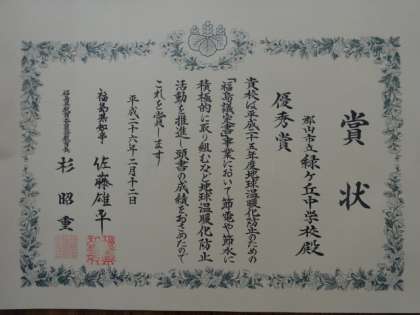 賞状
郡山市立緑ヶ丘中学校殿
優秀賞
貴校は平成二十五年度地球温暖化防止のための
「福島議定書」事業において節電や節水に
積極的に取り組むなど地球温暖化防止
活動を推進し頭書の成績をおさめたので
これを賞します
平成二十六年二月十二日
福島県知事 佐藤雄平
杉昭重